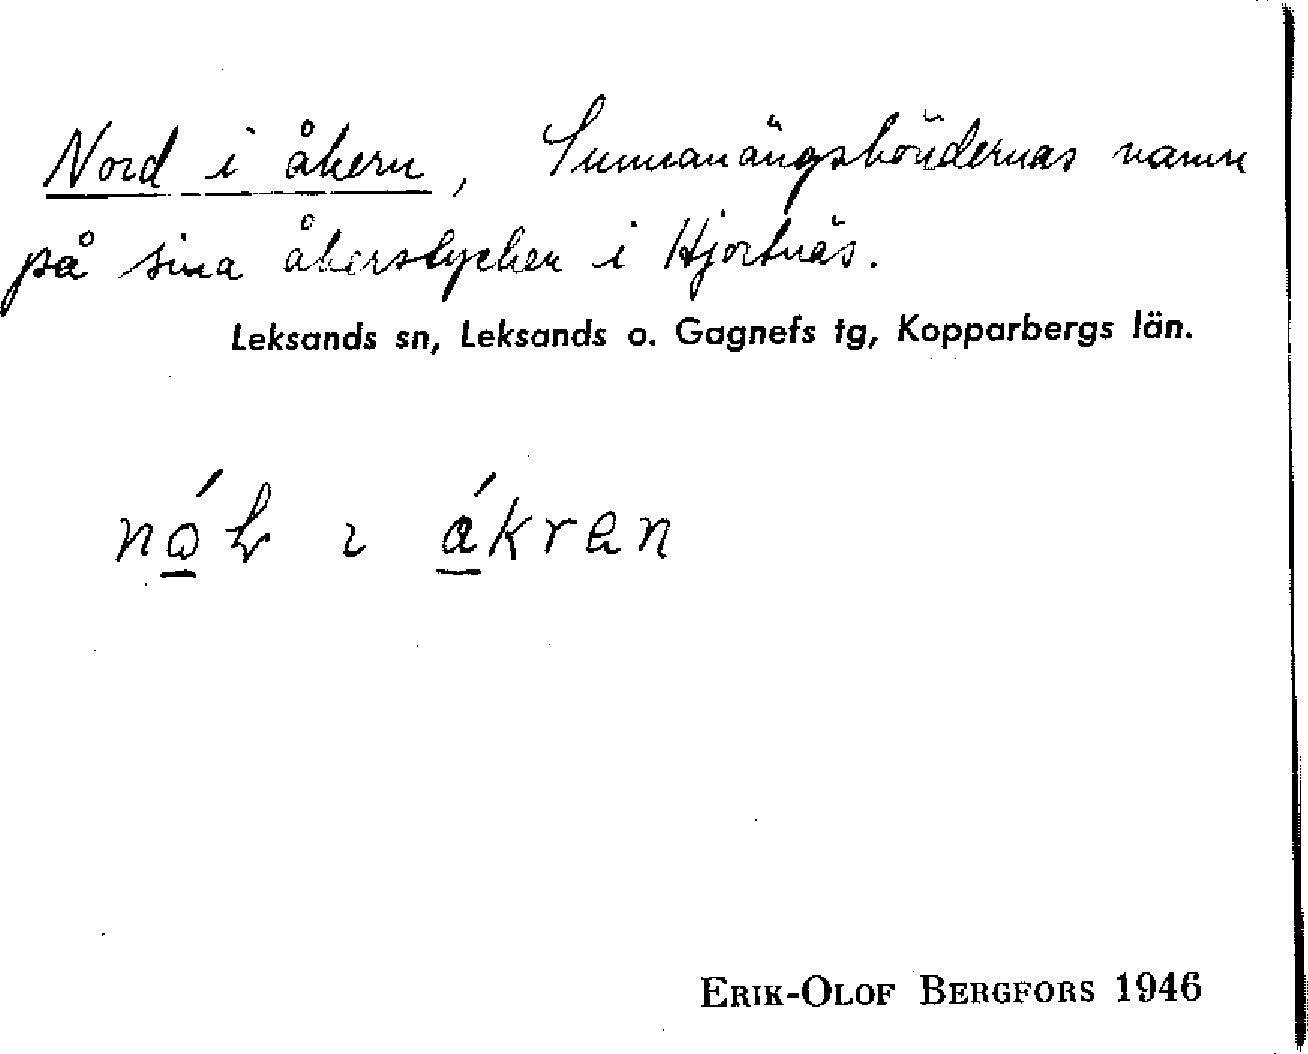 Nord i åkern, Sunnanängsböndernas namn
på sina åkerstycken i Hjortnäs.
Leksands sn, Leksands o. Gagnefs tg, Kopparbergs län.
ı ákren
ERIK-OLOF BERGFORS 1946